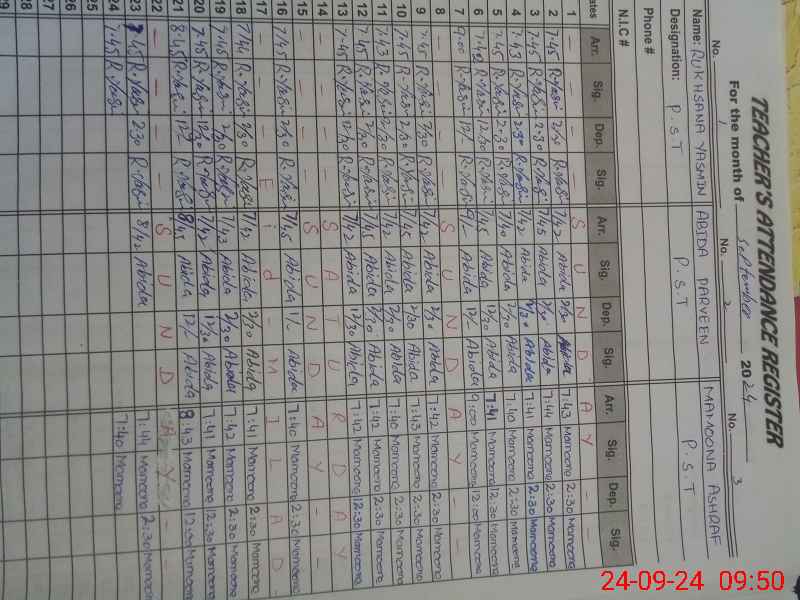 TEACHER'S ATTENDANCE REGISTER
For the month of September 2024
No. 1 No. 2 No. 3
Name: RUKHSANA YASMIN ABIDA PARVEEN MAMOONA ASHRAF
Designation: P.S.T P.S.T P.S.T
Phone #
N.I.C #
Dates Arr. Sig. Dep. Sig. Arr. Sig. Dep. Sig. Arr. Sig. Dep. Sig.
1 - - - - S U N D A Y - -
2 7:45 R.Yasmin 2/30 R.Yasmin 7/42 Abida 2/30 Abida 7:43 Mamoona 2:30 Mamoona
3 7:45 R.Yasmin 2:30 R.Yasmin 7/45 Abida 2/30 Abida 7:44 Mamoona 2:30 Mamoona
4 7:43 R.Yasmin 2:30 R.Yasmin 7/42 Abida 2/30 Abida 7:41 Mamoona 2:30 Mamoona
5 7:45 R.Yasmin 2:30 R.Yasmin 7/40 Abida 2/30 Abida 7:40 Mamoona 2:30 Mamoona
6 7:40 R.Yasmin 12/30 R.Yasmin 7/45 Abida 12/30 Abida 7:41 Mamoona 12:30 Mamoona
7 9:00 R.Yasmin 12/- R.Yasmin 9/- Abida 12/- Abida 9:00 Mamoona 12:00 Mamoona
8 - - - - S U N D A Y - -
9 7:45 R.Yasmin 2/30 R.Yasmin 7/42 Abida 2/30 Abida 7:42 Mamoona 2:30 Mamoona
10 7:45 R.Yasmin 2/30 R.Yasmin 7/45 Abida 2/30 Abida 7:43 Mamoona 2:30 Mamoona
11 7:43 R.Yasmin 2/30 R.Yasmin 7/42 Abida 2/30 Abida 7:40 Mamoona 2:30 Mamoona
12 7:45 R.Yasmin 2/30 R.Yasmin 7/45 Abida 2/30 Abida 7:42 Mamoona 2:30 Mamoona
13 7:45 R.Yasmin 12/30 R.Yasmin 7/42 Abida 12/30 Abida 7:42 Mamoona 12:30 Mamoona
14 - - - - S A T U R D A Y
15 - - - - S U N D A Y - -
16 7/45 R.Yasmin 2/30 R.Yasmin 7/45 Abida 1/- Abida 7:40 Mamoona 2:30 Mamoona
17 - - - E i d - M I L A D
18 7/44 R.Yasmin 2/30 R.Yasmin 7/42 Abida 2/30 Abida 7:41 Mamoona 2:30 Mamoona
19 7:45 R.Yasmin 2/30 R.Yasmin 7/43 Abida 2/30 Abida 7:42 Mamoona 2:30 Mamoona
20 7:45 R.Yasmin 12/30 R.Yasmin 7/42 Abida 12/30 Abida 7:41 Mamoona 12:30 Mamoona
21 8:45 R.Yasmin 12/- R.Yasmin 8/45 Abida 12/- Abida 8:43 Mamoona 12:00 Mamoona
22 - - - - S U N D A Y - -
23 7:45 R.Yasmin 2:30 R.Yasmin 8/42 Abida 7:44 Mamoona 2:30 Mamoona
24 7:45 R.Yasmin 7:40 Mamoona
25
26
27
28
29
24-09-24 09:50